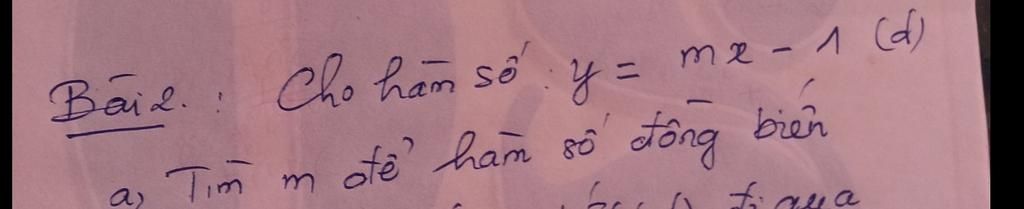 Bài 2. : Cho hàm số : y = mx - 1 (d)
a, Tìm m để hàm số đồng biến
đi qua